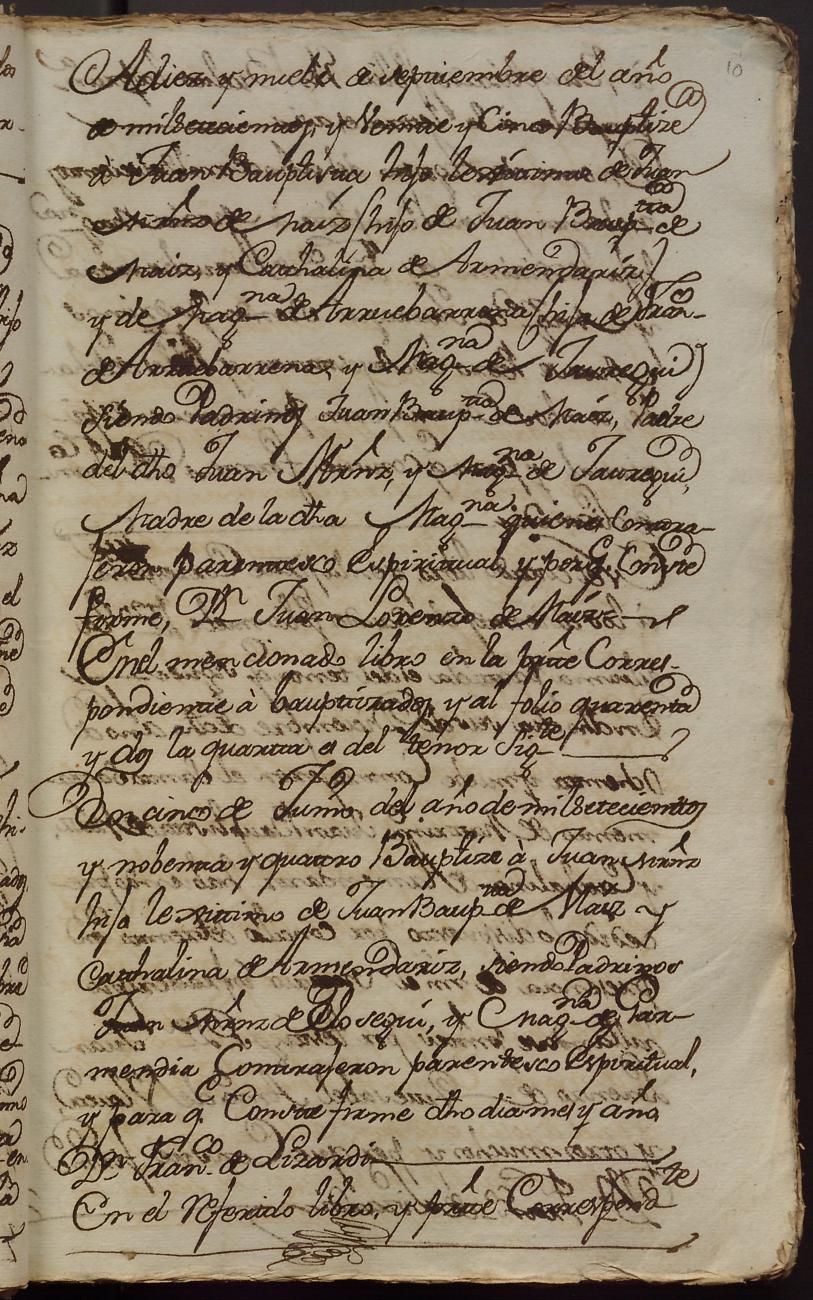 10
A diez y nuebe de septiembre del año
de mil setecientos, y Veinte y Cinco Bauptize
à Juan Bauptista hijo lexitimo de Juan
Mrñz de Maiz (hijo de Juan Baup.ta de
Maiz, y Catthalina de Armendariz)
y de Mag.na de Arruebarrena (hija de Fran.co
de Arruebarrena, y Mag.na de Jauregui)
siendo Padrinos Juan Baup.ta de Maiz, Padre
del dho Juan Mrñz, y Mag.na de Jauregui,
Madre de la dha Mag.na quienes Contra-
jeron parentesco Espiritual y por q. Conste
firme, Dn Juan Lorenzo de Maiz
En el mencionado libro en la prte Corres-
pondiente à bauptizados, y al folio quarenta
y dos la quartta es del tenor sig.te
En cinco de Junio del año de mil setecientos
y nobenta y quattro Bauptize à Juan Mrñz
hijo lexitimo de Juan Baup.ta de Maiz y
Catthalina de Armendariz, siendo Padrinos
Juan Mrñz de Elosegui, y Mag.na de Gar-
mendia Contrajeron parentesco Espiritual,
y para q.e Conste firme dho dia mes y año
Dn Fran.co de Lizardi
En el referido libro, y prte Correspond.te